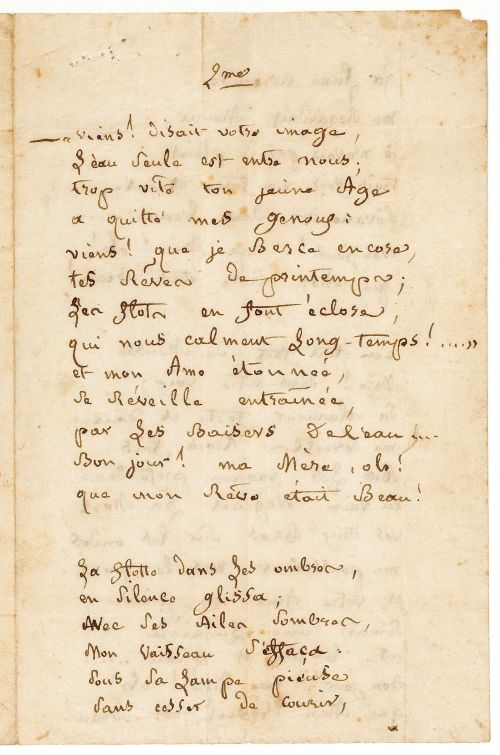 2me
— « viens! disait votre image,
L'eau seule est entre nous;
trop vite ton jeune Age
a quitté mes genoux:
viens! que je Berce encore,
tes Rêves de printemps;
Les flots en font éclore,
qui nous calment Long-temps!.... »
et mon Ame étonnée,
se Réveille entraînée
par Les Baisers De l'eau....
Bon jour! ma Mère, oh!
que mon Rêve était Beau!
La flotte dans Les ombres,
en silence glissa;
Avec ses Ailes sombres,
Mon vaisseau s'effaça:
sous sa Lampe pieuse
sans cesser de courir,